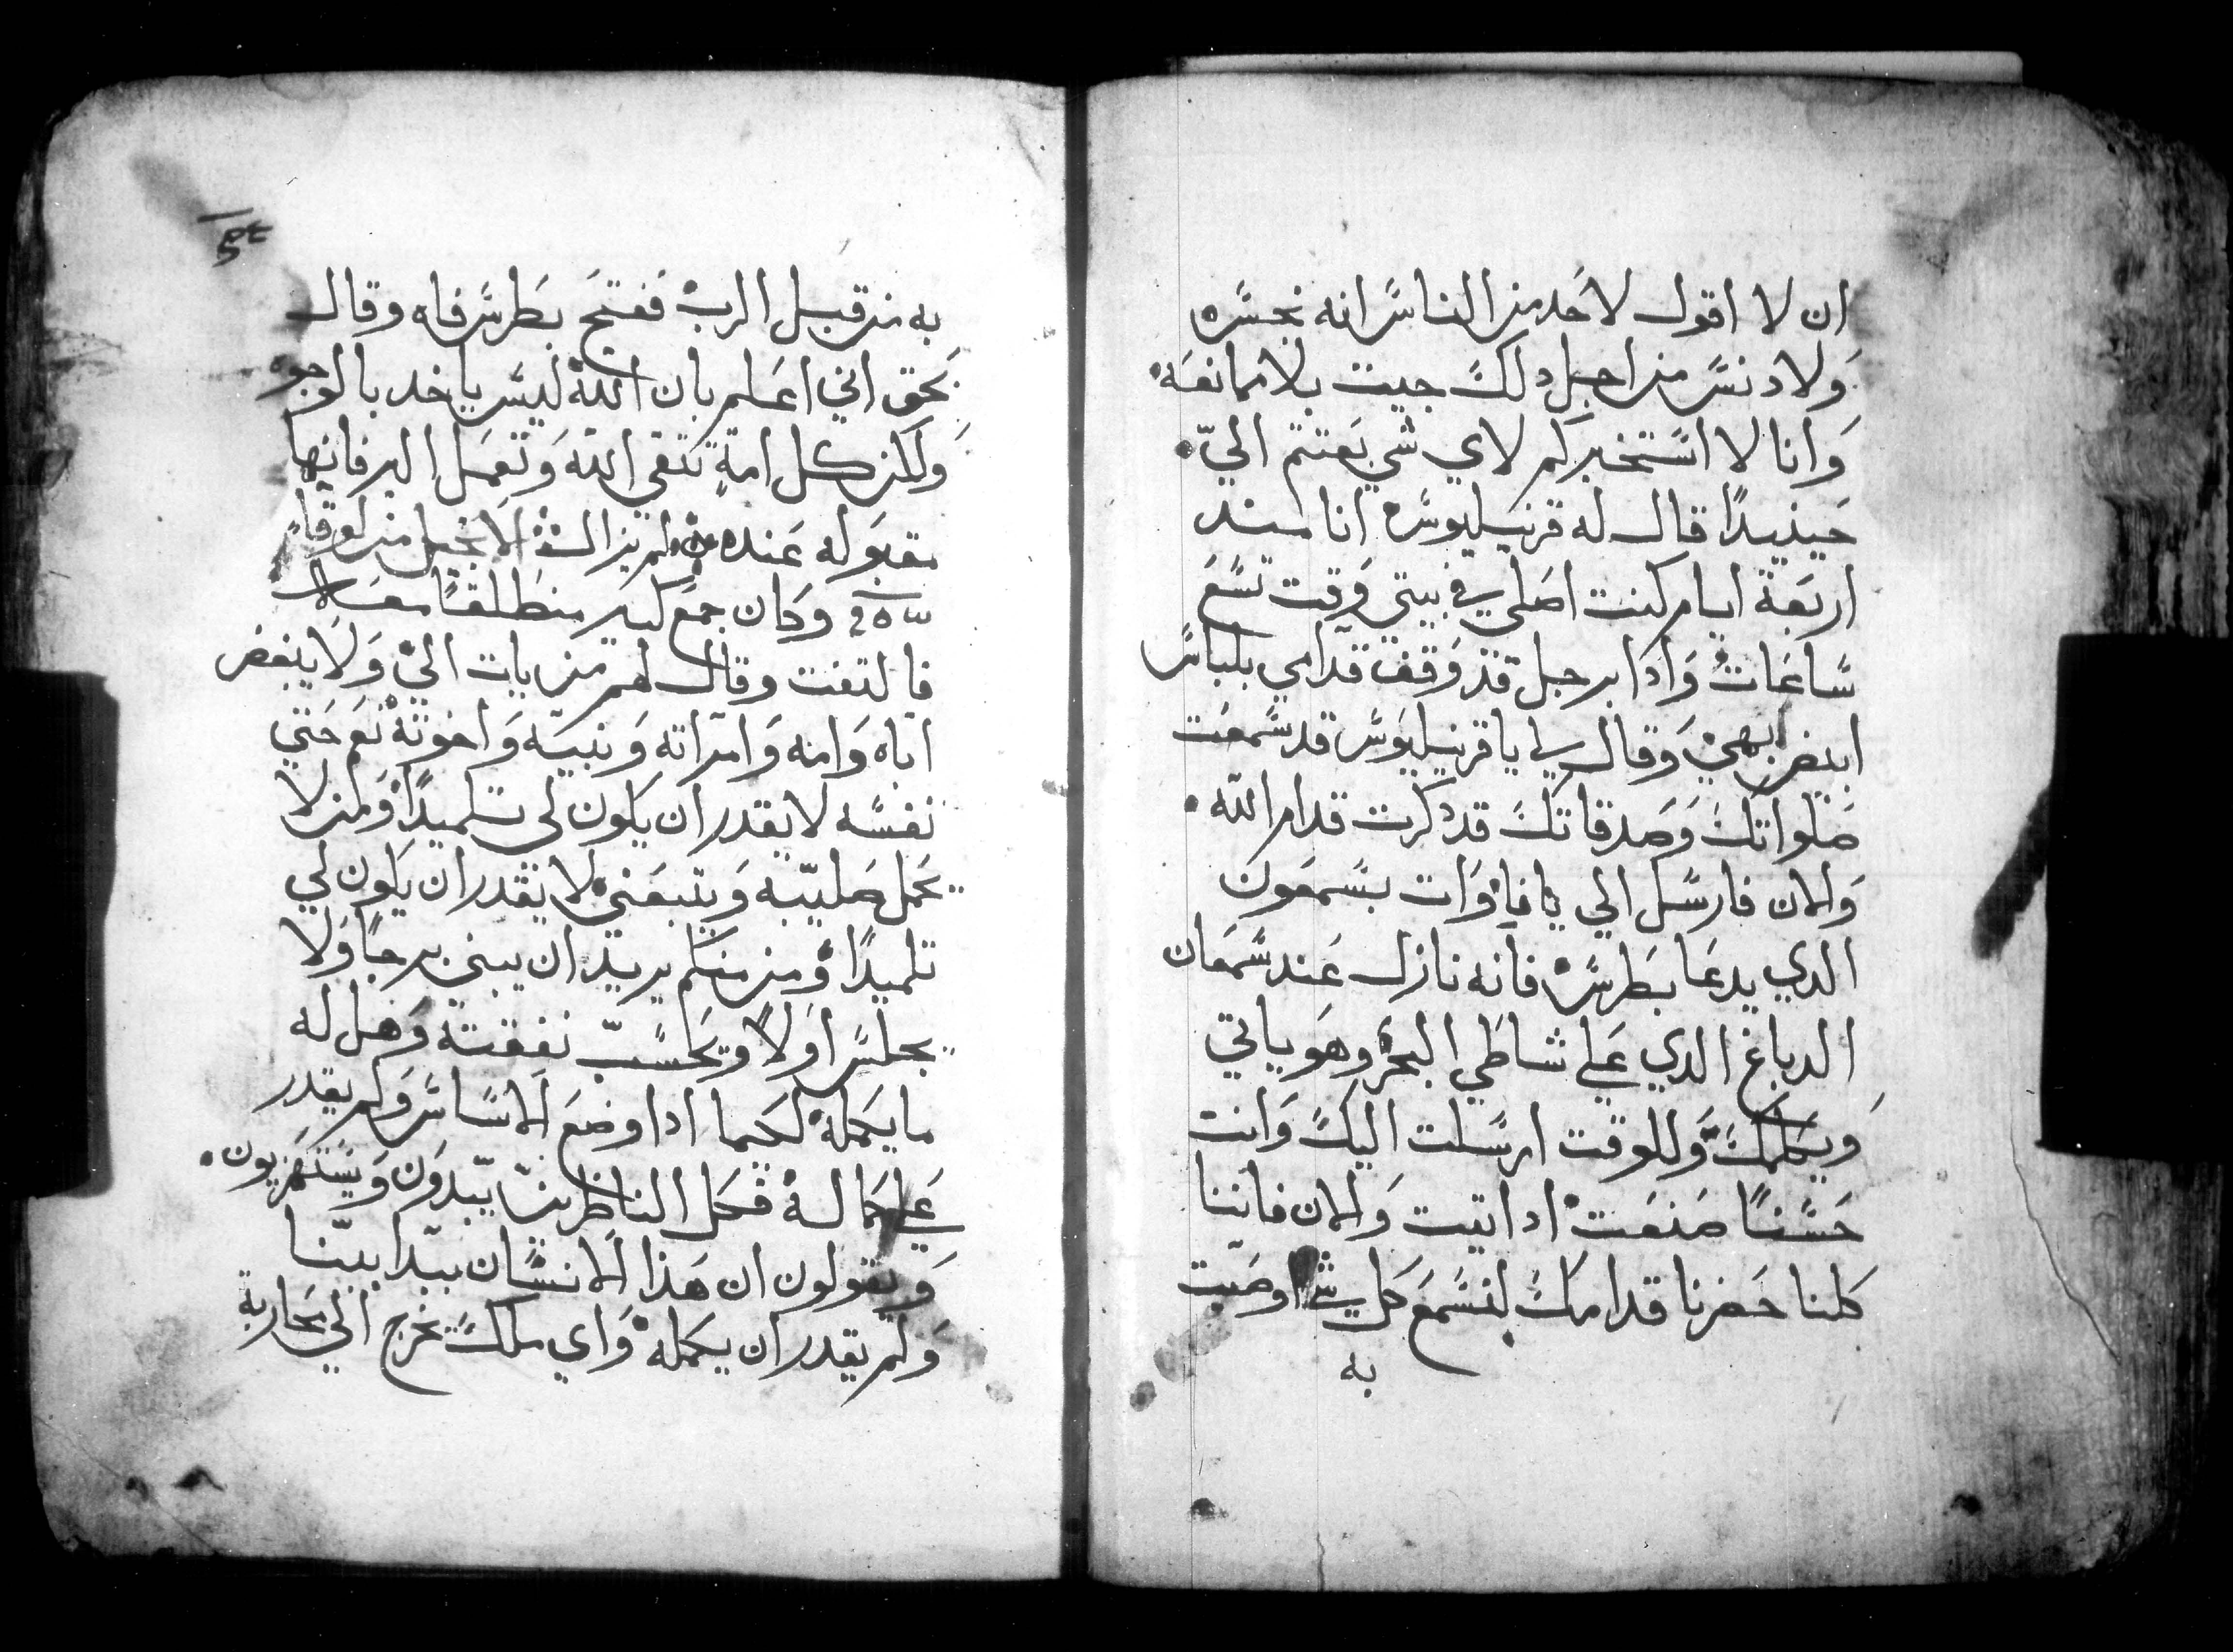 ان لا اقول لاحد من الناس انه نجس
ولا دنس من اجل دلك جيت بلا ممانعة
وانا لا استخبركم لاي شي بعتتم الي
حينيدًا قال له قرنيليوس انا مند
اربعة ايام كنت اصلي في بيتي وقت تسع
ساعات وادا برجل قد وقف قدامي بلباس
ابيض بهي وقال لي يا قرنيليوس قد سمعت
صلواتك وصدقاتك قد دكرت قدام الله
والان فارسل الي يافا وات بسمعون
الدي يدعا بطرس فانه نازل عند سمعان
الدباغ الدي علي شاطي البحر وهو ياتي
ويكلمك وللوقت ارسلت اليك وانت
حسنًا صنعت اد اتيت والان فاننا
كلنا حضرنا قدامك لنسمع كل شي اوصيت
به
به من قبل الرب ففتح بطرس فاه وقال
بحق اني اعلم بان الله ليس ياخد بالوجوه
ولكن كل امة تتقي الله وتعمل البر فانها
مقبوله عنده لم يزال الانجيل من لوقا
وكان جمع كبير منطلقًا معه
فالتفت وقال لهم من يات الي ولا يبغض
اباه وامه وامراته وبنيه واخوته نعم حتي
نفسه لا يقدر ان يكون لي تلميدًا ومن لا
يحمل صليبه ويتبعني لا يقدر ان يكون لي
تلميدًا ومن منكم يريد ان يبني برجًا ولا
يجلس اولًا ويحسب نفقته وهل له
ما يكمله لكيما ادا وضع الاساس ولم يقدر
علي كماله فكل الناظرين يبدون ويستهزيون
ويقولون ان هذا الانسان بدا يبنا
ولم يقدر ان يكمله واي ملك يخرج الي محاربة